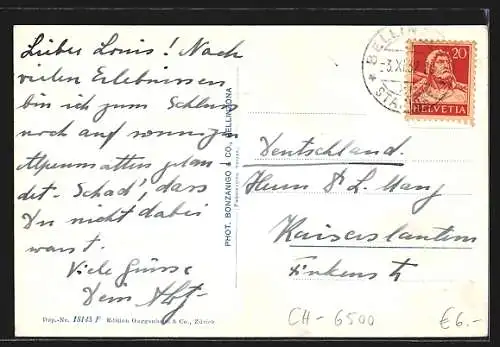 Lieber Louis! Nach
vielen Erlebnissen
bin ich zum Schluss
noch auf sonniger
Alpenmatten gelan
det. Schad', dass
Du nicht dabei
warst.
Viele Grüsse
Dein
Dep.-Nr. 18145 F Edition Guggenheim & Co., Zürich
PHOT. BONZANIGO & CO., BELLINZONA
BELLIN
-3.XI.
20
HELVETIA
Deutschland.
Herrn Dr L. Mang
Kaiserslautern
CH-6500
€6.-